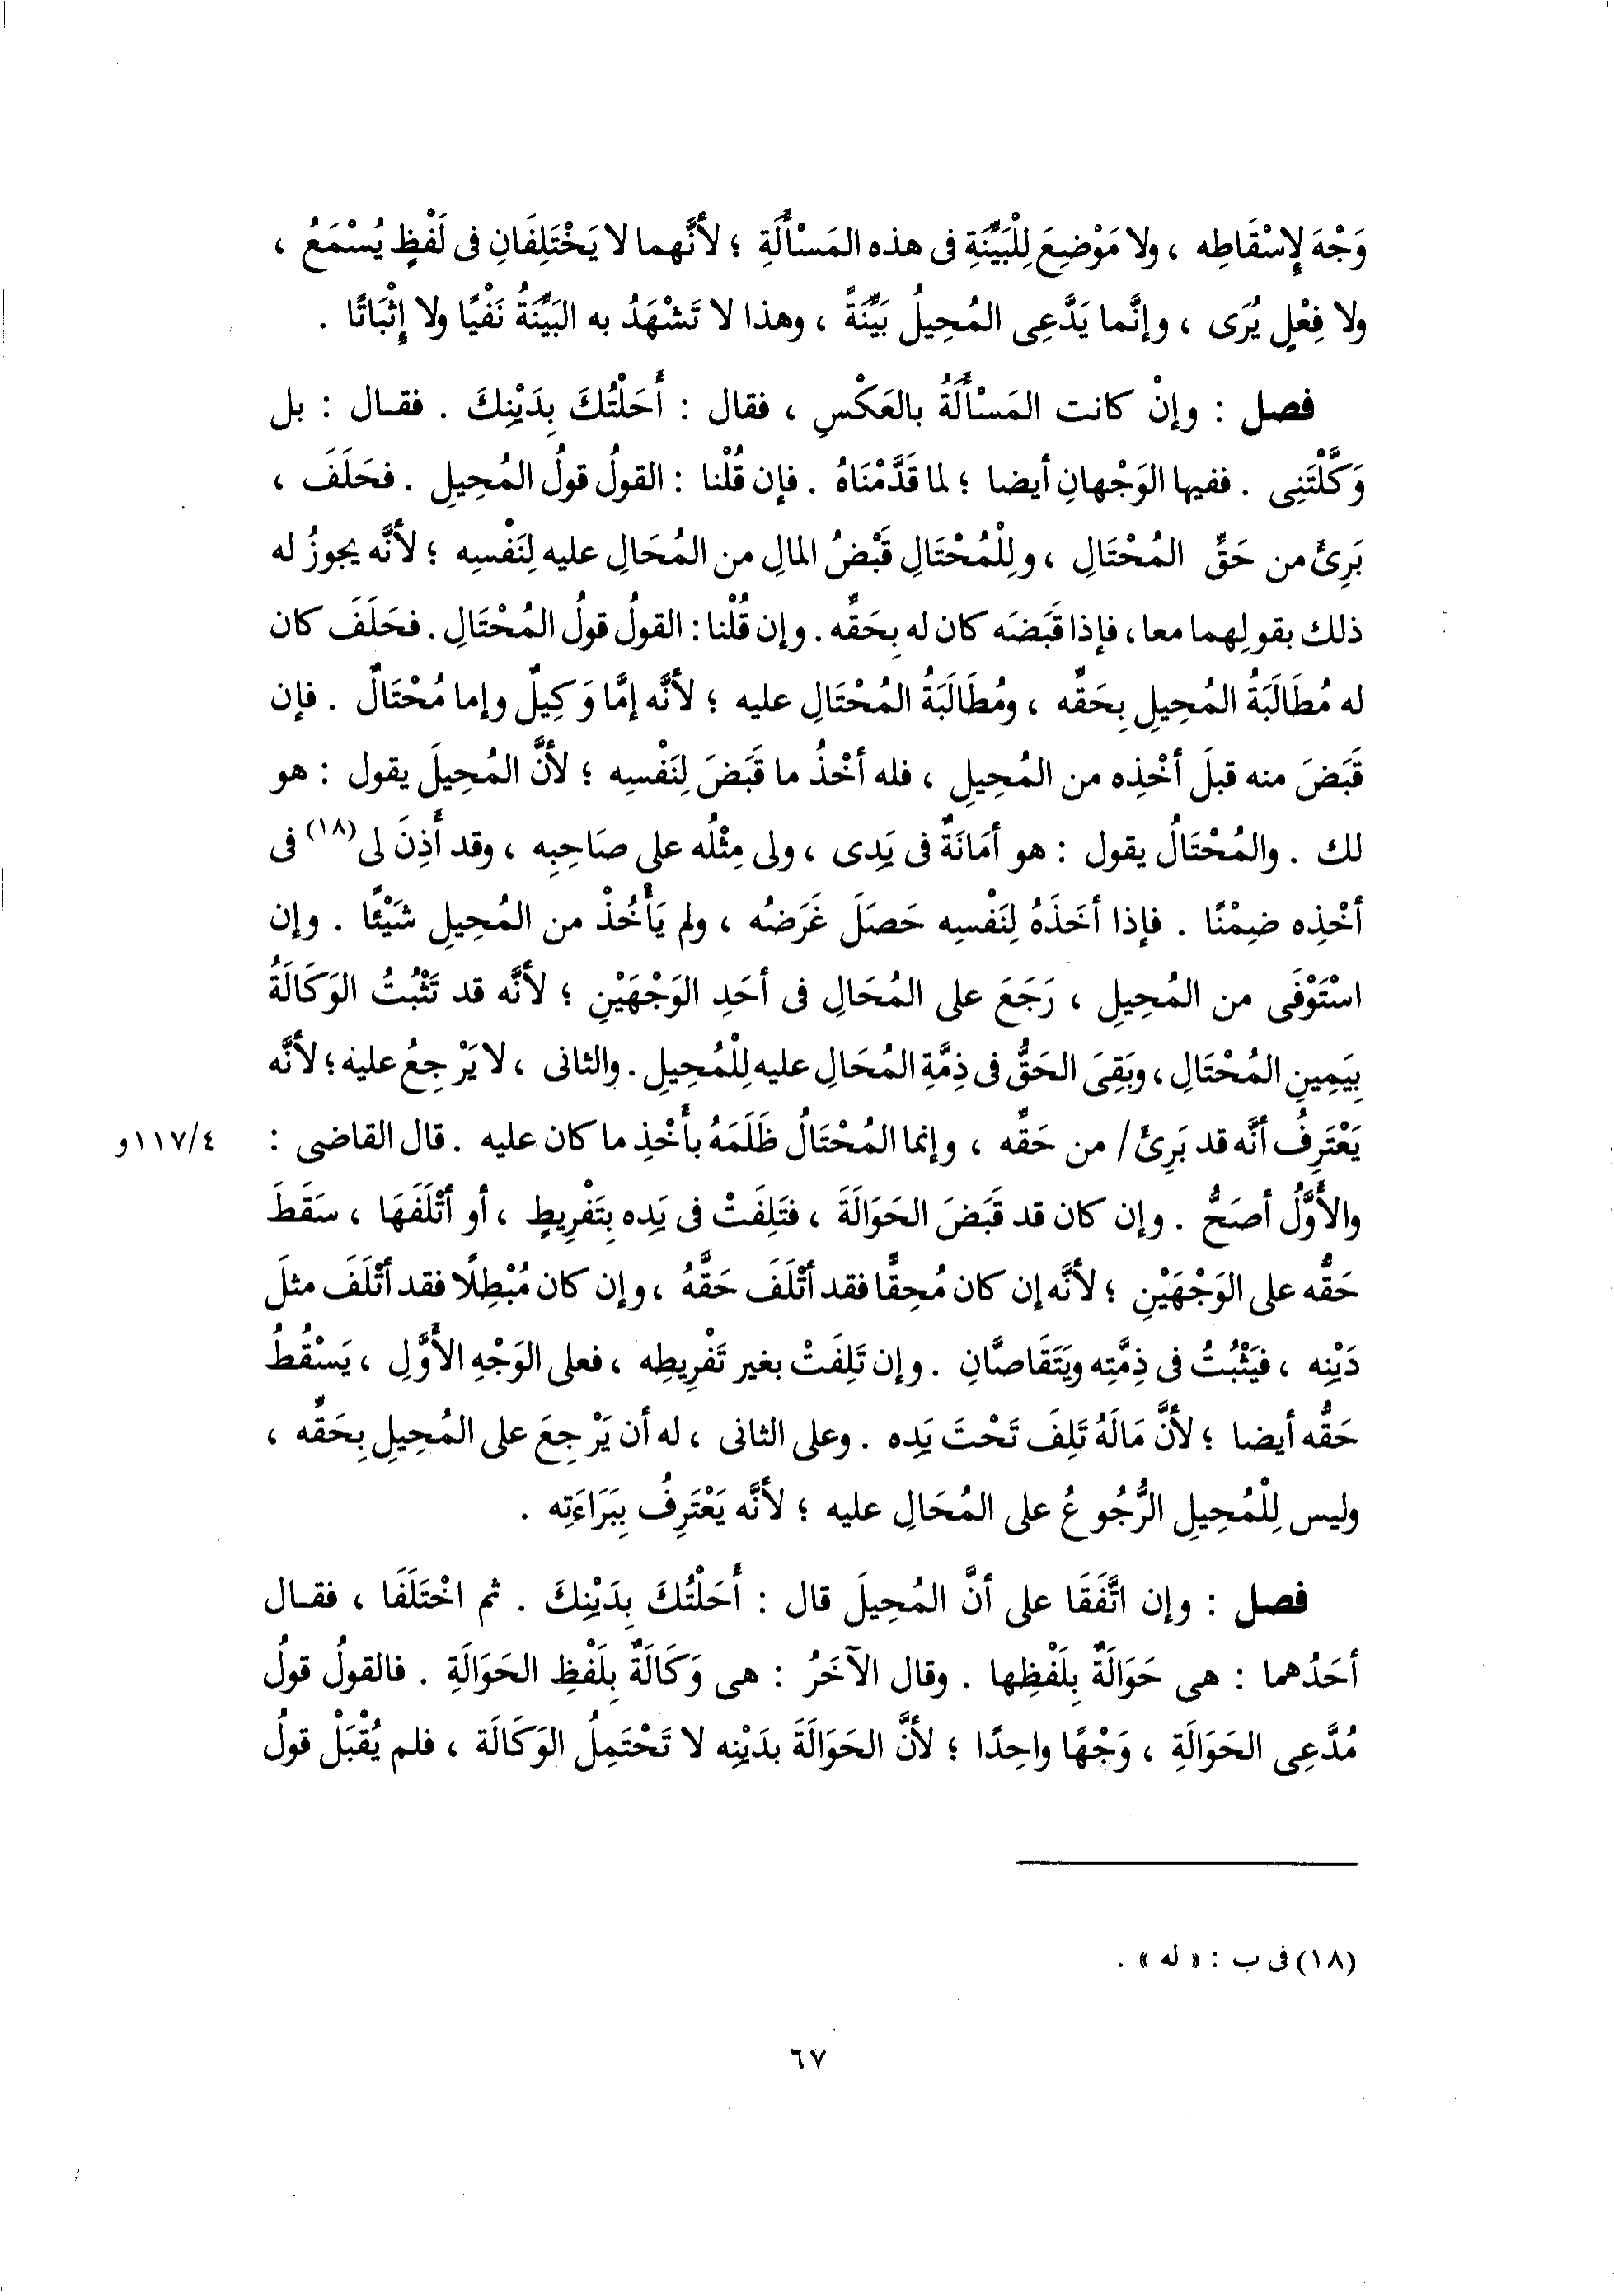 وَجْهَ لِإِسْقَاطِه ، ولا مَوْضِعَ لِلْبَيِّنَةِ فى هذه المَسْأَلَةِ ؛ لأنَّهما لا يَخْتَلِفَانِ فى لَفْظٍ يُسْمَعُ ،
ولا فِعْلٍ يُرَى ، وإنَّما يَدَّعِى المُحِيلُ بَيِّنَةً ، وهذا لا تَشْهَدُ به البَيِّنَةُ نَفْيًا ولا إِثْبَاتًا .
فصل : وإنْ كانت المَسْأَلَةُ بالعَكْسِ ، فقال : أَحَلْتُكَ بِدَيْنِكَ . فقال : بل
وَكَّلْتَنِى . ففيها الوَجْهانِ أيضا ؛ لما قَدَّمْنَاهُ . فإن قُلْنا : القولُ قولُ المُحِيلِ . فحَلَفَ ،
بَرِئَ من حَقِّ المُحْتَالِ ، ولِلْمُحْتَالِ قَبْضُ المالِ من المُحَالِ عليه لِنَفْسِه ؛ لأنَّه يجوزُ له
ذلك بقولِهما معا ، فإذا قَبَضَه كان له بِحَقِّه . وإن قُلْنا : القولُ قولُ المُحْتَالِ . فحَلَفَ كان
له مُطَالَبَةُ المُحِيلِ بِحَقِّه ، ومُطَالَبَةُ المُحْتَالِ عليه ؛ لأنَّه إمَّا وَكِيلٌ وإما مُحْتَالٌ . فإن
قَبَضَ منه قبلَ أخْذِه من المُحِيلِ ، فله أخْذُ ما قَبَضَ لِنَفْسِه ؛ لأنَّ المُحِيلَ يقول : هو
لك . والمُحْتَالُ يقول : هو أمَانَةٌ فى يَدِى ، ولى مِثْلُه على صَاحِبِه ، وقد أَذِنَ لى (١٨) فى
أخْذِه ضِمْنًا . فإذا أخَذَهُ لِنَفْسِه حَصَلَ غَرَضُه ، ولم يَأْخُذْ من المُحِيلِ شَيْئًا . وإن
اسْتَوْفَى من المُحِيلِ ، رَجَعَ على المُحَالِ فى أحَدِ الوَجْهَيْنِ ؛ لأنَّه قد تَثْبُتُ الوَكَالَةُ
بِيَمِينِ المُحْتَالِ ، وبَقِىَ الحَقُّ فى ذِمَّةِ المُحَالِ عليه لِلْمُحِيلِ . والثانى ، لا يَرْجِعُ عليه ؛ لأنَّه
يَعْتَرِفُ أنَّه قد بَرِئَ / من حَقِّه ، وإنما المُحْتَالُ ظَلَمَهُ بأَخْذِ ما كان عليه . قال القاضى :
٤/١١٧و
والأَوَّلُ أصَحُّ . وإن كان قد قَبَضَ الحَوَالَةَ ، فتَلِفَتْ فى يَدِه بِتَفْرِيطٍ ، أو أتْلَفَهَا ، سَقَطَ
حَقُّه على الوَجْهَيْنِ ؛ لأنَّه إن كان مُحِقًّا فقد أتْلَفَ حَقَّهُ ، وإن كان مُبْطِلًا فقد أتْلَفَ مثلَ
دَيْنِه ، فيَثْبُتُ فى ذِمَّتِه ويَتَقَاصَّانِ . وإن تَلِفَتْ بغير تَفْرِيطِه ، فعلى الوَجْهِ الأَوَّلِ ، يَسْقُطُ
حَقُّه أيضا ؛ لأنَّ مَالَهُ تَلِفَ تَحْتَ يَدِه . وعلى الثانى ، له أن يَرْجِعَ على المُحِيلِ بِحَقِّه ،
وليس لِلْمُحِيلِ الرُّجُوعُ على المُحَالِ عليه ؛ لأنَّه يَعْتَرِفُ بِبَرَاءَتِه .
فصل : وإن اتَّفَقَا على أنَّ المُحِيلَ قال : أَحَلْتُكَ بِدَيْنِكَ . ثم اخْتَلَفَا ، فقال
أحَدُهما : هى حَوَالَةٌ بِلَفْظِها . وقال الآخَرُ : هى وَكَالَةٌ بِلَفْظِ الحَوَالَةِ . فالقولُ قولُ
مُدَّعِى الحَوَالَةِ ، وَجْهًا واحِدًا ؛ لأنَّ الحَوَالَةَ بدَيْنِه لا تَحْتَمِلُ الوَكَالَة ، فلم يُقْبَلْ قولُ
(١٨) فى ب : « له » .
٦٧